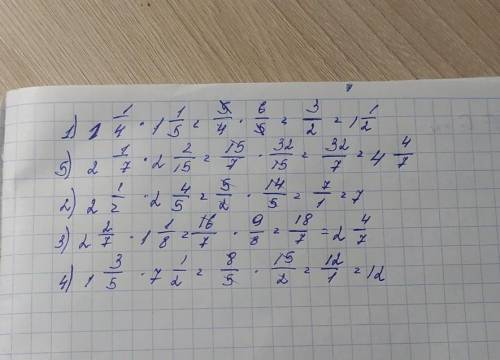 1) 1 1/4 · 1 1/5 = 5/4 · 6/5 = 3/2 = 1 1/2
5) 2 1/7 · 2 2/15 = 15/7 · 32/15 = 32/7 = 4 4/7
2) 2 1/2 · 2 4/5 = 5/2 · 14/5 = 7/1 = 7
3) 2 2/7 · 1 1/8 = 16/7 · 9/8 = 18/7 = 2 4/7
4) 1 3/5 · 7 1/2 = 8/5 · 15/2 = 12/1 = 12